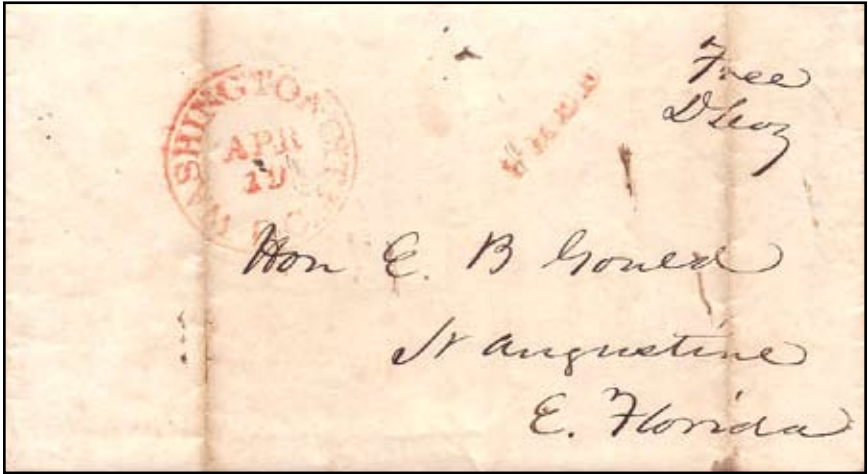 WASHINGTON CITY D.C.
APR
19
FREE
Free
D Levy
Hon E. B Gould
St Augustine
E. Florida